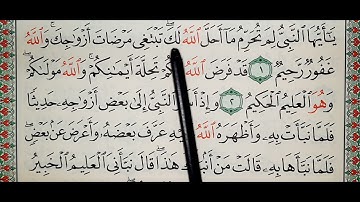 يَـٰٓأَيُّهَا ٱلنَّبِىُّ لِمَ تُحَرِّمُ مَآ أَحَلَّ ٱللَّهُ لَكَ ۖ تَبْتَغِى مَرْضَاتَ أَزْوَٰجِكَ ۚ وَٱللَّهُ
غَفُورٌ رَّحِيمٌ ١ قَدْ فَرَضَ ٱللَّهُ تَحِلَّةَ أَيْمَـٰنِكُمْ ۚ وَٱللَّهُ مَوْلَىٰكُمْ ۖ
وَهُوَ ٱلْعَلِيمُ ٱلْحَكِيمُ ٢ وَإِذْ ٱلنَّبِىُّ إِلَىٰ بَعْضِ أَزْوَٰجِهِۦ حَدِيثًا
فَلَمَّا نَبَّأَتْ بِهِۦ وَأَظْهَرَهُ ٱللَّهُ عَرَّفَ بَعْضَهُۥ وَأَعْرَضَ عَنۢ بَعْضٍ ۖ
فَلَمَّا نَبَّأَهَا بِهِۦ قَالَتْ مَنْ هَـٰذَا ۖ قَالَ نَبَّأَنِىَ ٱلْعَلِيمُ ٱلْخَبِيرُ